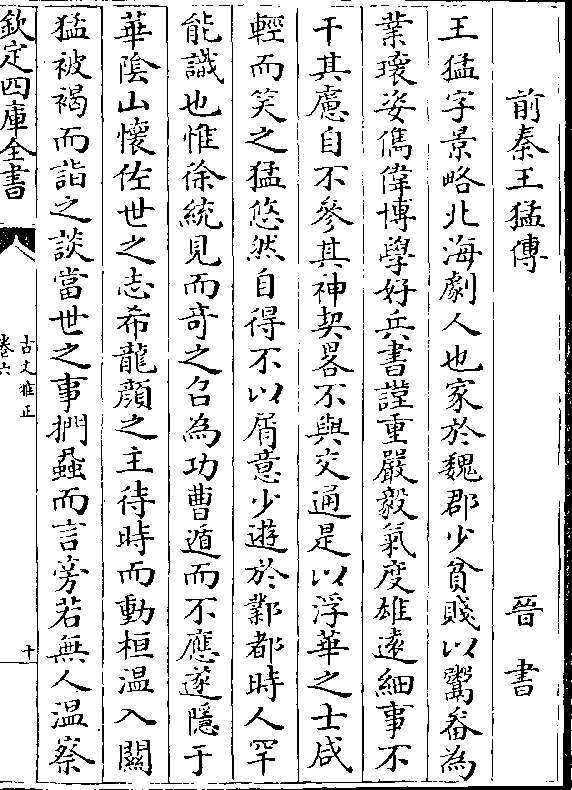 前秦王猛傳 晉書
王猛字景略北海劇人也家於魏郡少貧賤以鬻畚為
業瓌姿儁偉博學好兵書謹重嚴毅氣度雄遠細事不
干其慮自不參其神契畧不與交通是以浮華之士咸
輕而笑之猛悠然自得不以屑意少遊於鄴都時人罕
能識也惟徐統見而奇之召為功曹遁而不應遂隱于
華陰山懷佐世之志希龍顏之主待時而動桓温入關
猛被褐而詣之談當世之事捫蝨而言旁若無人温察
欽定四庫全書
古文雅正
卷六
十